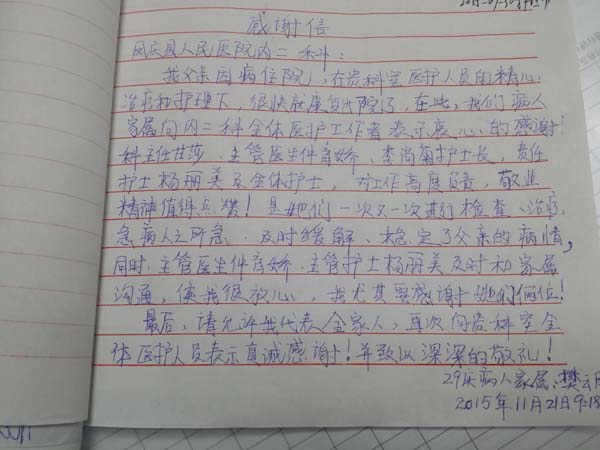 感谢信
凤庆县人民医院内二科：
我父亲因病住院，在贵科室医护人员的精心
治疗和护理下，很快就康复出院了，在此，我们病人
家属向内二科全体医护工作者表示衷心的感谢！
科主任甘莎、主管医生件育娇、李尚菊护士长，责任
护士杨丽美及全体护士，对工作高度负责，敬业
精神值得点赞！是她们一次又一次进行检查、治疗，
急病人之所急，及时缓解、稳定了父亲的病情，
同时，主管医生件育娇、主管护士杨丽美及时和家属
沟通，使我很放心，我尤其要感谢她们俩位！
最后，请允许我代表全家人，再次向贵科室全
体医护人员表示真诚感谢！并致以深深的敬礼！
29床病人家属：樊云
2015年11月21日9:18